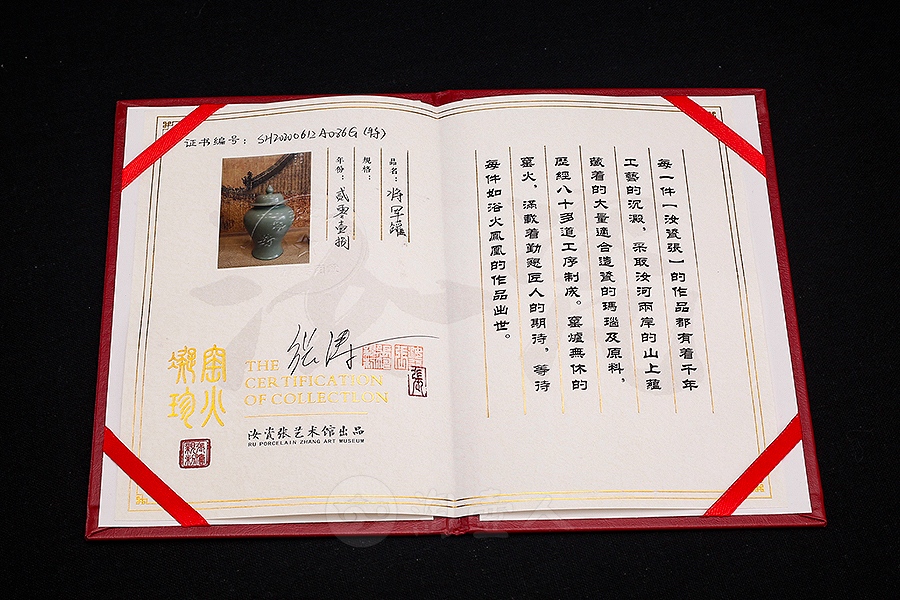 证书编号: SH20200612A036G (特)
品名: 将军罐
规格:
年份: 贰零壹捌
THE
CERTIFICATION
OF COLLECTION
窑火
凝珍
汝瓷张艺术馆出品
RU PORCELAIN ZHANG ART MUSEUM
每一件一汝瓷張一的作品都有着千年
工藝的沉澱,采取汝河兩岸的山上蘊
藏着的大量適合造瓷的瑪瑙及原料,
歷經八十多道工序制成。窑爐無休的
窑火,滿載着勤懇匠人的期待,等待
每件如浴火鳳凰的作品出世。